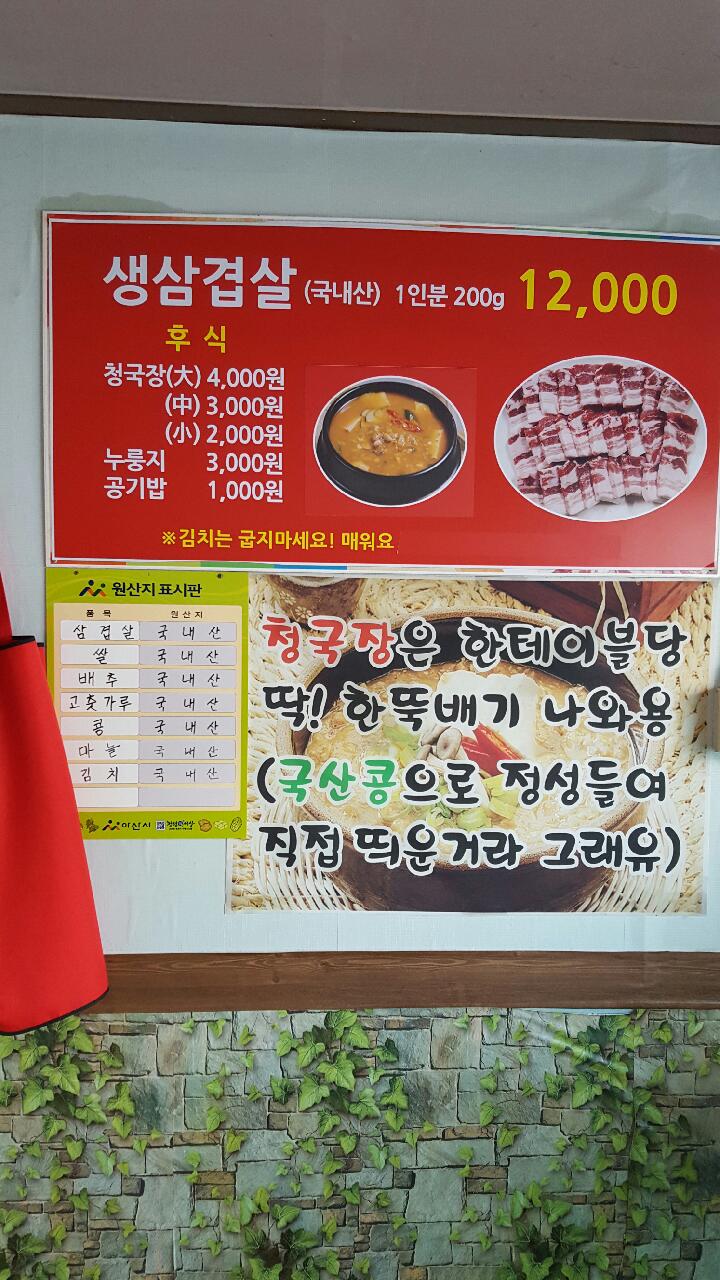 생삼겹살 (국내산) 1인분 200g 12,000
후식
청국장(大) 4,000원
(中) 3,000원
(小) 2,000원
누룽지 3,000원
공기밥 1,000원
※김치는 굽지마세요! 매워요
원산지 표시판
품목 원산지
삼겹살 국내산
쌀 국내산
배추 국내산
고춧가루 국내산
콩 국내산
마늘 국내산
김치 국내산
아산시
청국장은 한테이블당
딱! 한뚝배기 나와용
(국산콩으로 정성들여
직접 띄운거라 그래유)